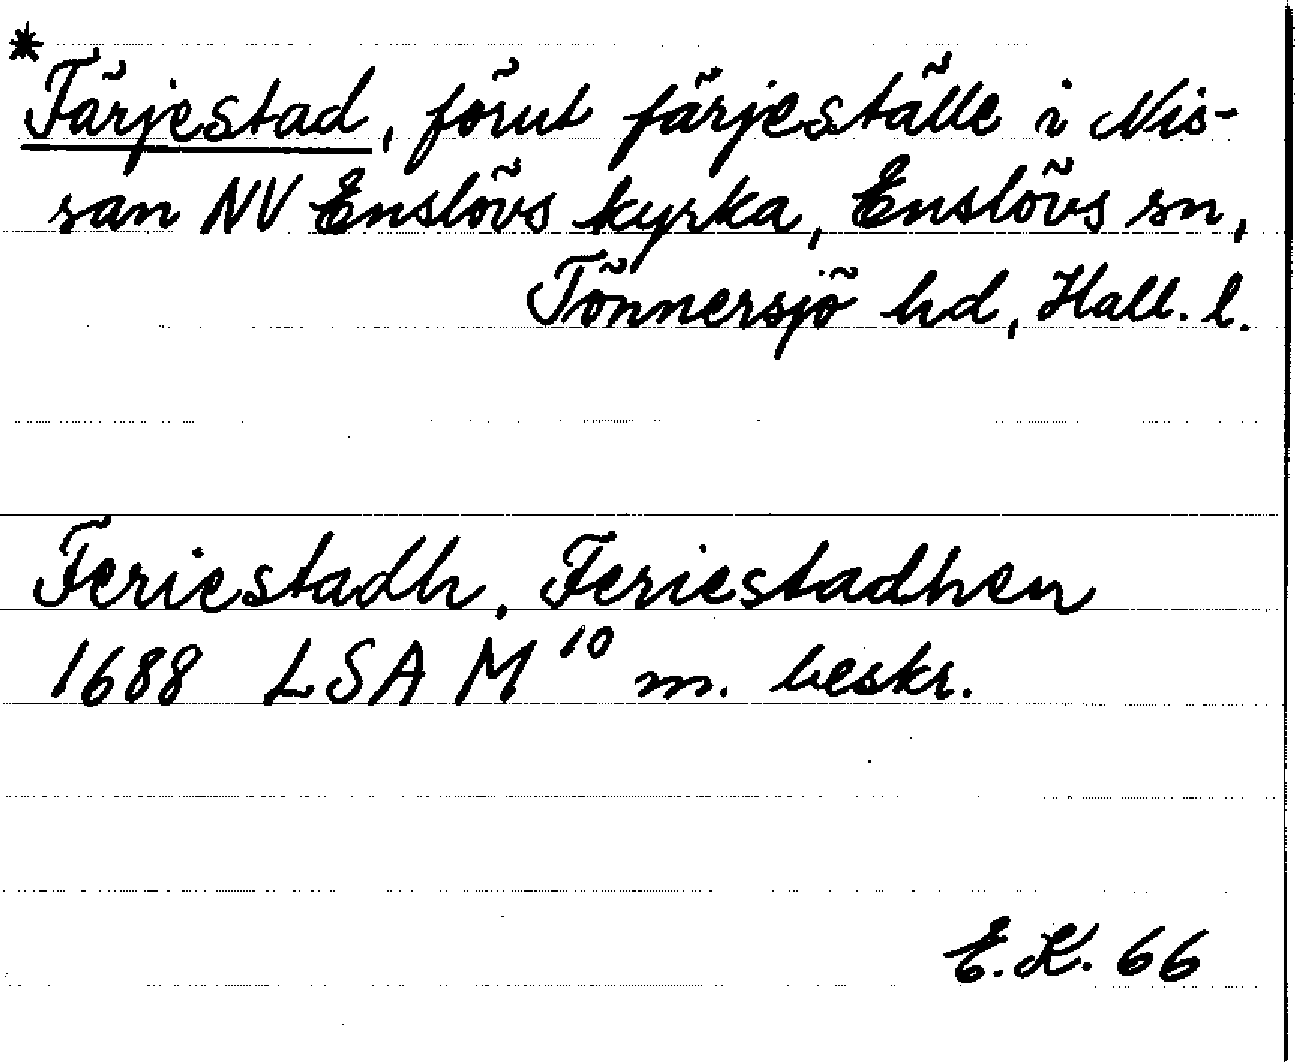 *
Färjestad, förut färjeställe i Nis-
san NV Enslövs kyrka, Enslövs sn,
Tönnersjö hd, Hall. l.
Feriestadh. Feriestadhen
1688 LSA M¹⁰ m. beskr.
E.K. 66